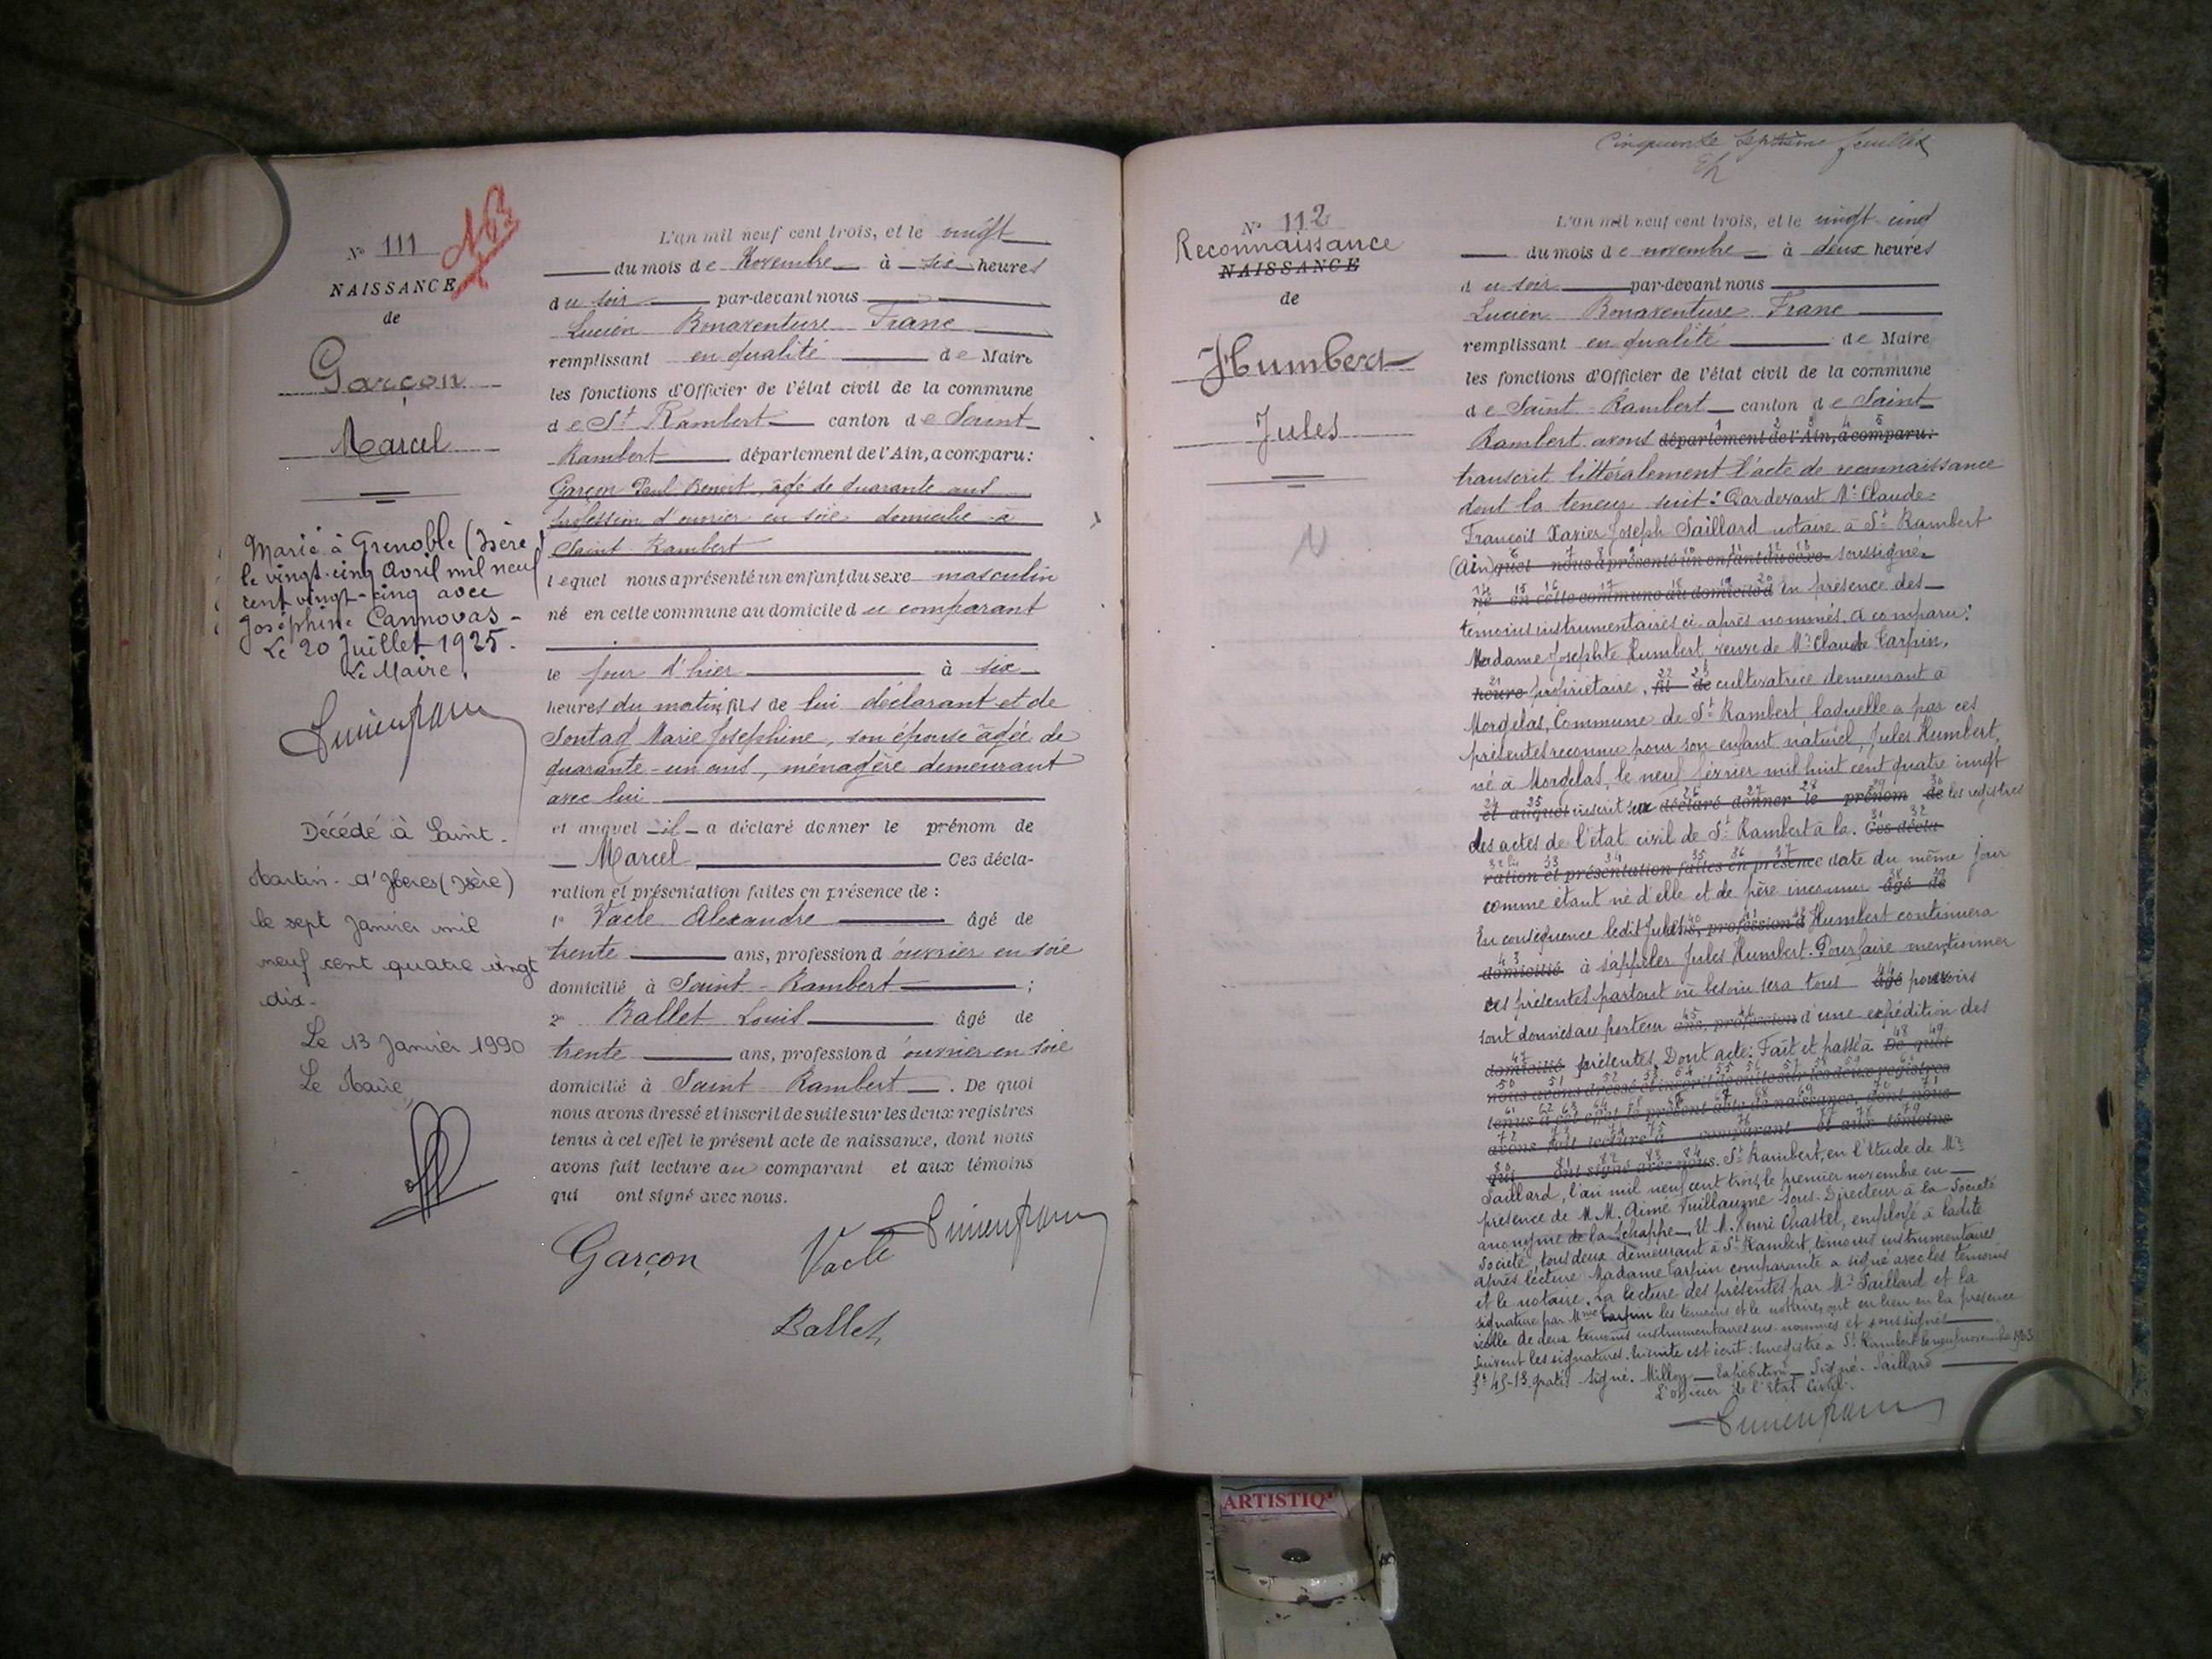 N° 111
NAISSANCE
de
Garçon
Marcel
Marié à Grenoble (Isère)
le vingt-cinq Avril mil neuf
cent vingt-cinq avec
Joséphine Cannovas -
Le 20 Juillet 1925.
Le Maire,
Décédé à Saint-
Martin-d'Hères (Isère)
le sept Janvier mil
neuf cent quatre vingt
dix -
Le 13 Janvier 1990
Le Maire
L'an mil neuf cent trois, et le vingt
du mois de Novembre à six heures
du soir par-devant nous
Lucien Bonaventure Franc
remplissant en qualité de Maire
les fonctions d'Officier de l'état civil de la commune
de St Rambert canton de Saint
Rambert département de l'Ain, a comparu:
Garçon Paul Benoit, âgé de quarante ans
profession d'ouvrier en soie domicilié à
Saint Rambert
lequel nous a présenté un enfant du sexe masculin
né en cette commune au domicile du comparant
le jour d'hier à six
heures du matin, fils de lui déclarant et de
Sontag Marie Joséphine, son épouse âgée de
quarante-un ans, ménagère demeurant
avec lui
et auquel il a déclaré donner le prénom de
Marcel Ces décla-
ration et présentation faites en présence de :
1° Vacle Alexandre âgé de
trente ans, profession d'ouvrier en soie
domicilié à Saint-Rambert ;
2° Ballet Louis âgé de
trente ans, profession d'ouvrier en soie
domicilié à Saint Rambert. De quoi
nous avons dressé et inscrit de suite sur les deux registres
tenus à cet effet le présent acte de naissance, dont nous
avons fait lecture au comparant et aux témoins
qui ont signé avec nous.
Garçon Vacle
Ballet
Cinquante septième feuillet
N° 112
Reconnaissance
NAISSANCE
de
Humbert
Jules
L'an mil neuf cent trois, et le vingt cinq
du mois de novembre à deux heures
du soir par-devant nous
Lucien Bonaventure Franc
remplissant en qualité de Maire
les fonctions d'Officier de l'état civil de la commune
de Saint-Rambert canton de Saint
Rambert avons département de l'Ain, a comparu:
transcrit littéralement l'acte de reconnaissance
dont la teneur suit: Par devant Me Claude
François Xavier Joseph Saillard notaire à St Rambert
(Ain) quel nous a présenté un enfant du sexe soussigné
né en cette commune au domicile d en présence des
témoins instrumentaires ci-après nommés. A comparu:
Madame Josephte Humbert veuve de Mr Claude Carpin,
heure propriétaire, fil de cultivatrice demeurant à
Morgelas, Commune de St Rambert, laquelle a par ces
présentes reconnu pour son enfant naturel, Jules Humbert,
né à Morgelas, le neuf février mil huit cent quatre vingt
et auquel inscrit sur déclaré donner le prénom de les registres
des actes de l'état civil de St Rambert à la. Ces décla-
ration et présentation faites en présence date du même jour
comme étant né d'elle et de père inconnu âgé de
En conséquence ledit Jules ans, profession d Humbert continuera
domicilié à s'appeler Jules Humbert. Pour faire mentionner
ces présentes partout où besoin sera tous âgé pouvoirs
sont donnés au porteur ans, profession d'une expédition des
domicilié présentes. Dont acte: Fait et passé à De quoi
nous avons dressé et inscrit de suite sur les deux registres
tenus à cet effet le présent acte de naissance, dont nous
avons fait lecture à comparant et aux témoins
qui ont signé avec nous. St Rambert, en l'étude de Me
Saillard, l'an mil neuf cent trois, le premier novembre en
présence de M.M. Aimé Vuillaume Sous-Directeur à la Société
anonyme de la Schappe Et M. Henri Chastel, employé à ladite
Société, tous deux demeurant à St Rambert, témoins instrumentaires
après lecture Madame Carpin comparante a signé avec les témoins
et le notaire. La lecture des présentes par Me Saillard et la
signature par Mme Carpin les témoins et le notaire, ont eu lieu en la présence
réelle de deux témoins instrumentaires sus-nommés et soussignés
Suivent les signatures. Ensuite est écrit: Enregistré à St Rambert le neuf novembre 1903
Fo 45-13 gratis Signé. Expédition Signé. Saillard
L'officier de l'état civil.
ARTISTIQ